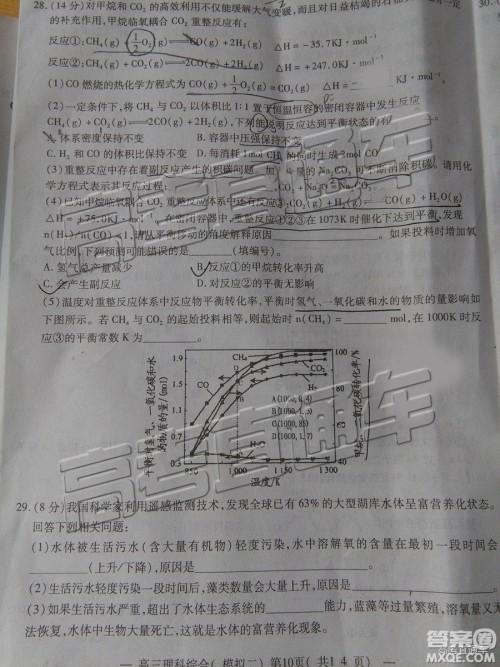 28. (14 分) 对甲烷和 CO₂ 的高效利用不仅能缓解大气变暖, 而且对日益枯竭的石
的补充作用, 甲烷临氧耦合 CO₂ 重整反应有:
反应①: CH₄(g)+1/2O₂(g)⇌CO(g)+2H₂(g) △H=-35.7KJ·mol⁻¹
反应②: CH₄(g)+CO₂(g)⇌2CO(g)+2H₂(g) △H=+247.0KJ·mol⁻¹
(1) CO 燃烧的热化学方程式为 CO(g)+1/2O₂(g)=CO₂(g) △H= KJ·mol⁻¹
(2) 一定条件下, 将 CH₄ 与 CO₂ 以体积比 1:1 置于恒温恒容的密闭容器中发生反应
CH₄(g)+CO₂(g)⇌2CO(g)+2H₂(g), 下列能说明反应达到平衡状态的有
A. 体系密度保持不变 B. 容器中压强保持不变
C. H₂ 和 CO 的体积比保持不变 D. 每消耗 1mol CH₄ 的同时生成 2mol CO
(3) 重整反应中存在着副反应产生的积碳问题, 加 量的 可不断消除积碳, 请用化
学方程式表示其反应过程:
(4) 已知甲烷临氧耦合 CO₂ 重整反应体系中还有反应③: (g)+H₂O(g)
△H=+75.0KJ·mol⁻¹, 重整反应①②③在 1073K 时催化下达到平衡, 发现
n(H₂)/n(CO)<1, 请从平衡移动的角度解释原因 。如果投料时增加氧
气比例, 下列预测可能错误的是 (填编号)。
A. 氢气总产量减少 B. 反应①的甲烷转化率升高
C. 会产生副反应 D. 对反应②的平衡无影响
(5) 温度对重整反应体系中反应物平衡转化率, 平衡时氢气、一氧化碳和水的物质的量影响如
下图所示。若 CH₄ 与 CO₂ 的起始投料相等, 则起始时 n(CH₄)= mol, 在 1000K 时反
应③的平衡常数 K 为 。
平衡时氢气、一氧化碳和水
的物质的量/(mol)
1.9
1.5
1.1
0.7
CH₄
CO
CO₂
H₂
A(1000, 0.4)
C(1000, 85)
D(1000, 1.7)
100
80
60
40
850 1,000 1,150 1,300
温度/K
29. (8 分) 我国科学家利用遥感监测技术, 发现全球已有 63% 的大型湖库水体呈富营养化状态。
回答下列相关问题:
(1) 水体被生活污水(含大量有机物)轻度污染, 水中溶解氧的含量在最初一段时间会
(上升/下降), 原因是 。
(2) 生活污水轻度污染一段时间后, 藻类数量会大量上升, 原因是 。
(3) 如果生活污水严重, 超出了水体生态系统的 能力, 蓝藻等过量繁殖, 溶氧量又无
法恢复, 水体中生物大量死亡, 这就是水体的富营养化现象。
— 高三理科综合( 模拟二) 第10页( 共1 4 页) —
高考直通车